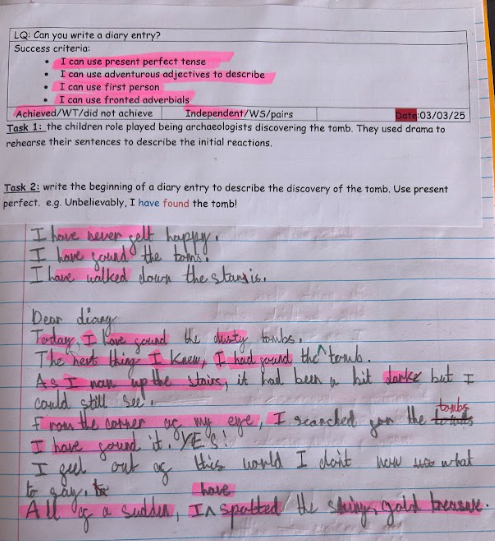 LQ: Can you write a diary entry?
Success criteria:
• I can use present perfect tense
• I can use adventurous adjectives to describe
• I can use first person
• I can use fronted adverbials
Achieved/WT/did not achieve Independent/WS/pairs Date:03/03/25
Task 1: the children role played being archaeologists discovering the tomb. They used drama to
rehearse their sentences to describe the initial reactions.
Task 2: write the beginning of a diary entry to describe the discovery of the tomb. Use present
perfect. e.g. Unbelievably, I have found the tomb!
I have never felt happy.
I have found the tomb.
I have walked down the
Dear diary
Today, I have found the dusty tombs.
The next thing I knew, I had found the tomb.
As I ran up the stairs, it had been a bit dark but I
could still see.
From the corner of my eye, I searched for the tombs
I have found it. YES!
I feel out of this world I don't now what
to say.
All of a sudden, I have spotted the shiny, gold treasure.